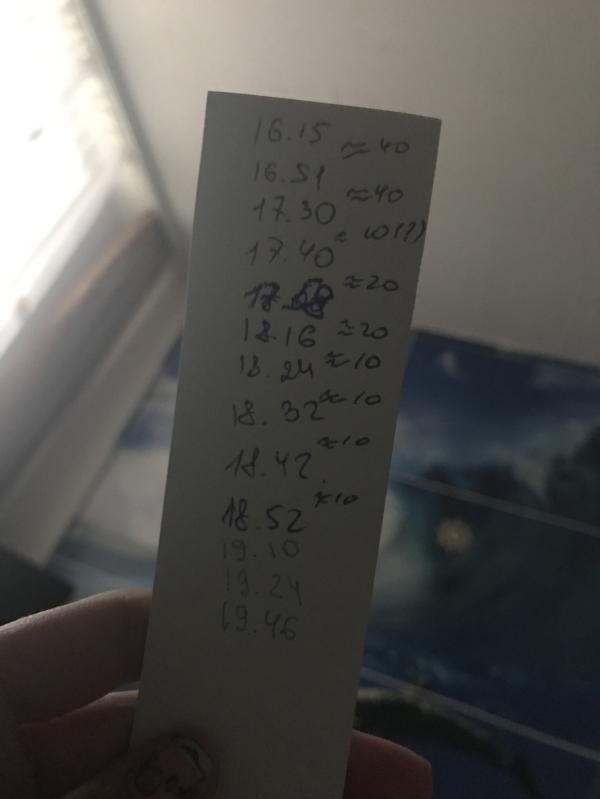 16.15
≈40
16.51
≈40
17.30
≈10(?)
17.40
≈20
17.58
18.16 ≈20
18.24 ≈10
18.32 ≈10
≈10
18.42
≈10
18.52
19.10
19.24
19.46